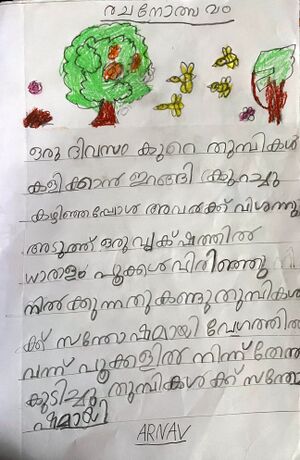 രചനോത്സവം
ഒരു ദിവസം കുറെ തുമ്പികൾ
കളിക്കാൻ ഇറങ്ങി കുറച്ചു
കഴിഞ്ഞപ്പോൾ അവർക്ക് വിശന്നു
അടുത്ത് ഒരു വൃക്ഷത്തിൽ
ധാരാളം പൂക്കൾ വിരിഞ്ഞു നി
നിൽക്കുന്നതു കണ്ടു തുമ്പികൾ
ക്ക് സന്തോഷമായി വേഗത്തിൽ
വന്ന് പൂക്കളിൽ നിന്ന് തേൻ
കുടിച്ചു തുമ്പികൾക്ക് സന്തോ
ഷമായി
ARNAV